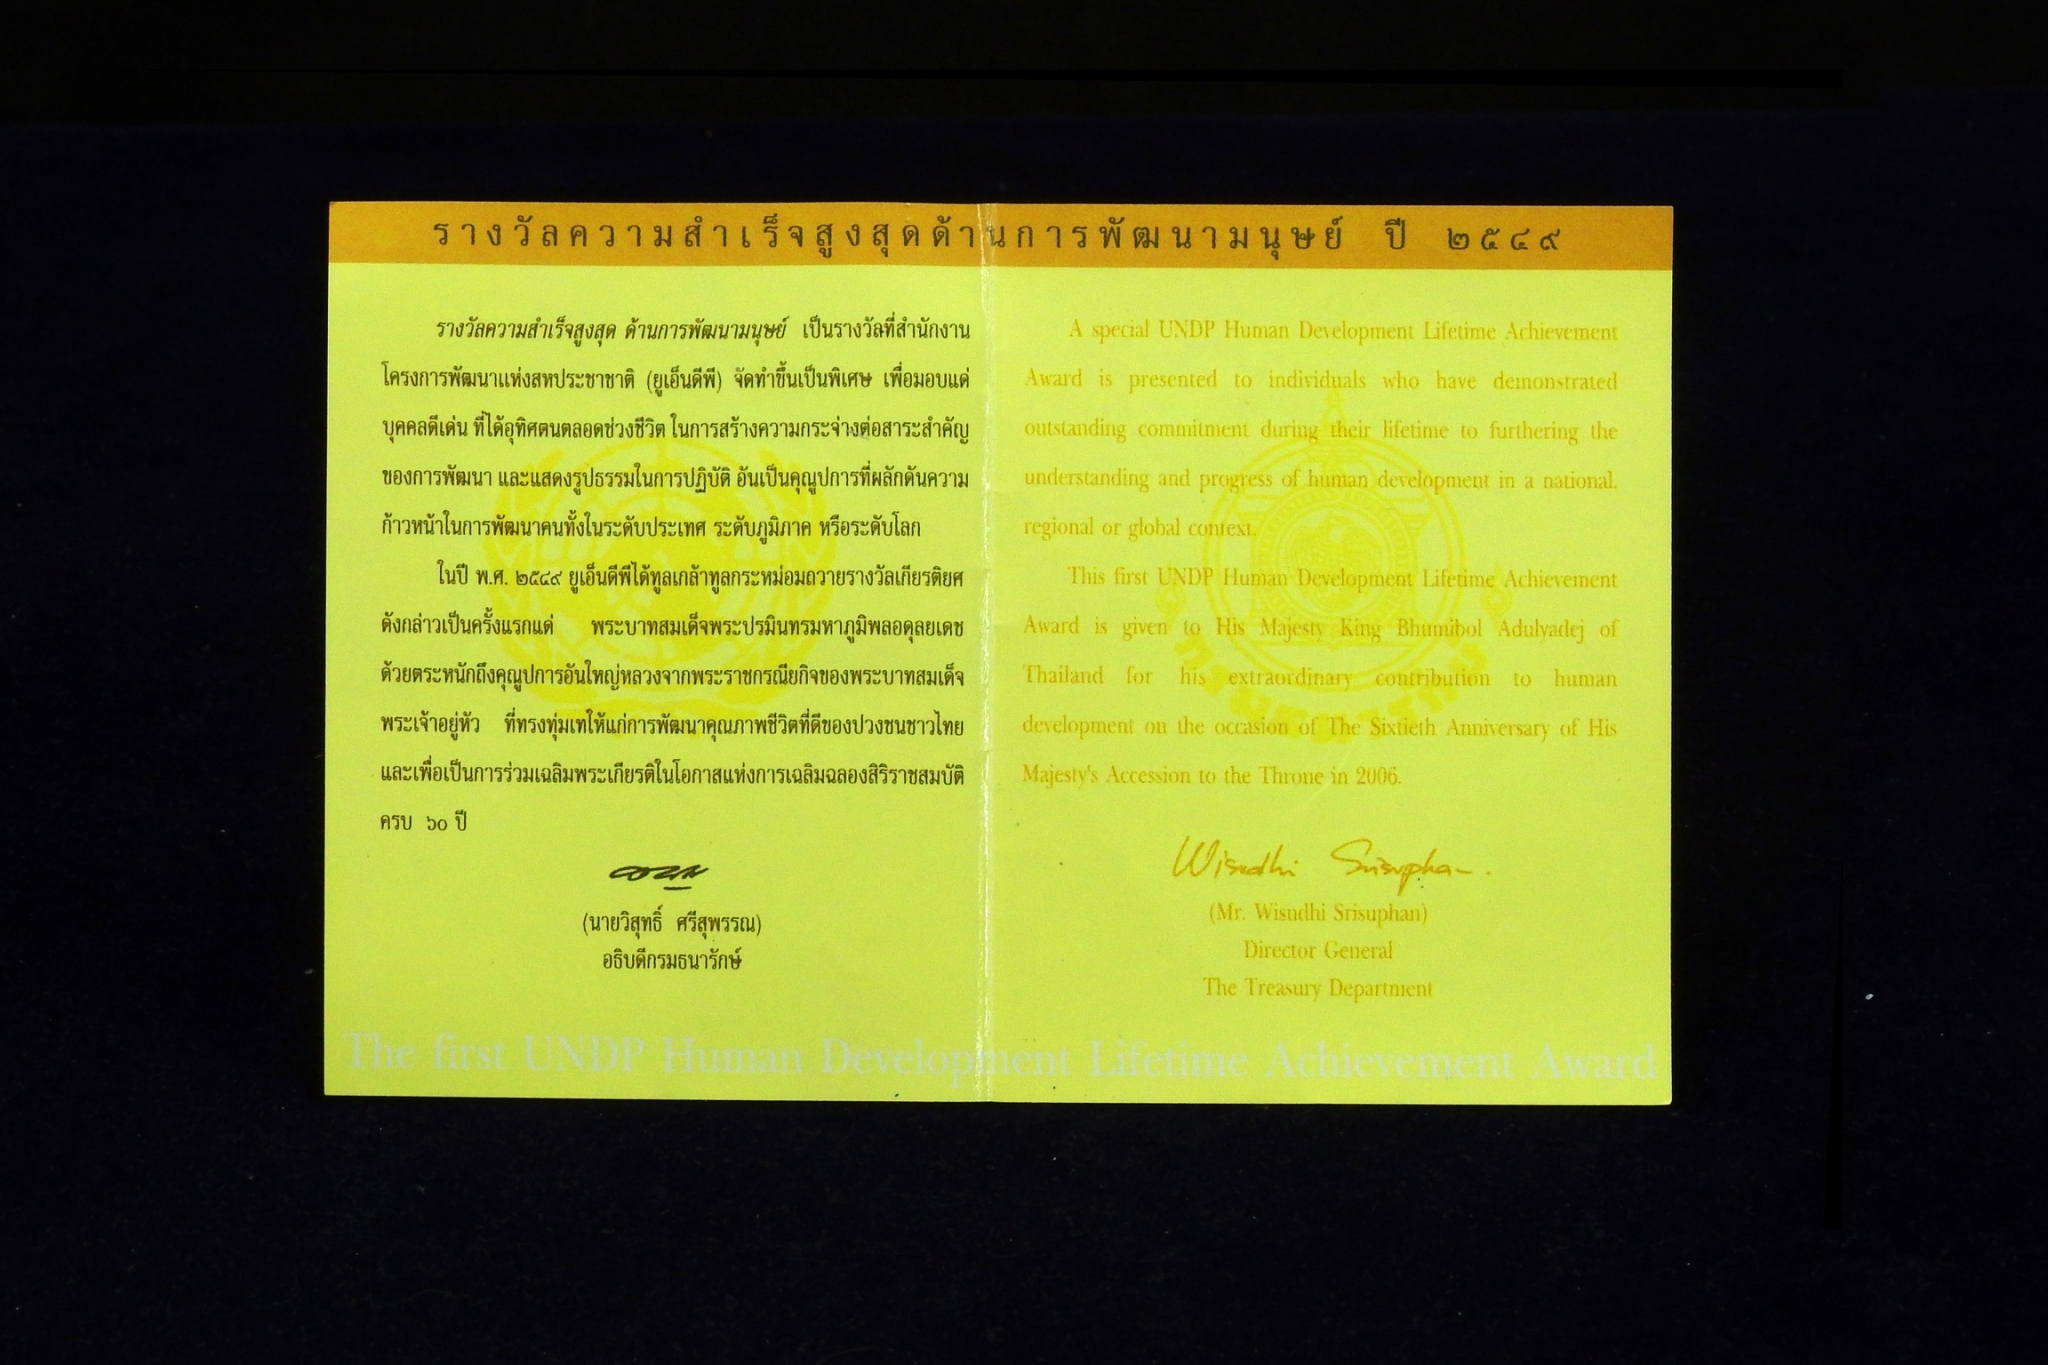 รางวัลความสำเร็จสูงสุดด้านการพัฒนามนุษย์ ปี ๒๕๔๙
รางวัลความสำเร็จสูงสุด ด้านการพัฒนามนุษย์ เป็นรางวัลที่สำนักงาน
โครงการพัฒนาแห่งสหประชาชาติ (ยูเอ็นดีพี) จัดทำขึ้นเป็นพิเศษ เพื่อมอบแด่
บุคคลดีเด่น ที่ได้อุทิศตนตลอดช่วงชีวิต ในการสร้างความกระจ่างต่อสาระสำคัญ
ของการพัฒนา และแสดงรูปธรรมในการปฏิบัติ อันเป็นคุณูปการที่ผลักดันความ
ก้าวหน้าในการพัฒนาคนทั้งในระดับประเทศ ระดับภูมิภาค หรือระดับโลก
ในปี พ.ศ. ๒๕๔๙ ยูเอ็นดีพีได้ทูลเกล้าทูลกระหม่อมถวายรางวัลเกียรติยศ
ดังกล่าวเป็นครั้งแรกแด่ พระบาทสมเด็จพระปรมินทรมหาภูมิพลอดุลยเดช
ด้วยตระหนักถึงคุณูปการอันใหญ่หลวงจากพระราชกรณียกิจของพระบาทสมเด็จ
พระเจ้าอยู่หัว ที่ทรงทุ่มเทให้แก่การพัฒนาคุณภาพชีวิตที่ดีของปวงชนชาวไทย
และเพื่อเป็นการร่วมเฉลิมพระเกียรติในโอกาสแห่งการเฉลิมฉลองสิริราชสมบัติ
ครบ ๖๐ ปี
(นายวิสุทธิ์ ศรีสุพรรณ)
อธิบดีกรมธนารักษ์
A special UNDP Human Development Lifetime Achievement
Award is presented to individuals who have demonstrated
outstanding commitment during their lifetime to furthering the
understanding and progress of human development in a national,
regional or global context.
This first UNDP Human Development Lifetime Achievement
Award is given to His Majesty King Bhumibol Adulyadej of
Thailand for his extraordinary contribution to human
development on the occasion of The Sixtieth Anniversary of His
Majesty's Accession to the Throne in 2006.
Wisudhi Srisuphan.
(Mr. Wisudhi Srisuphan)
Director General
The Treasury Department
กรมธนารักษ์
The first UNDP Human Development Lifetime Achievement Award